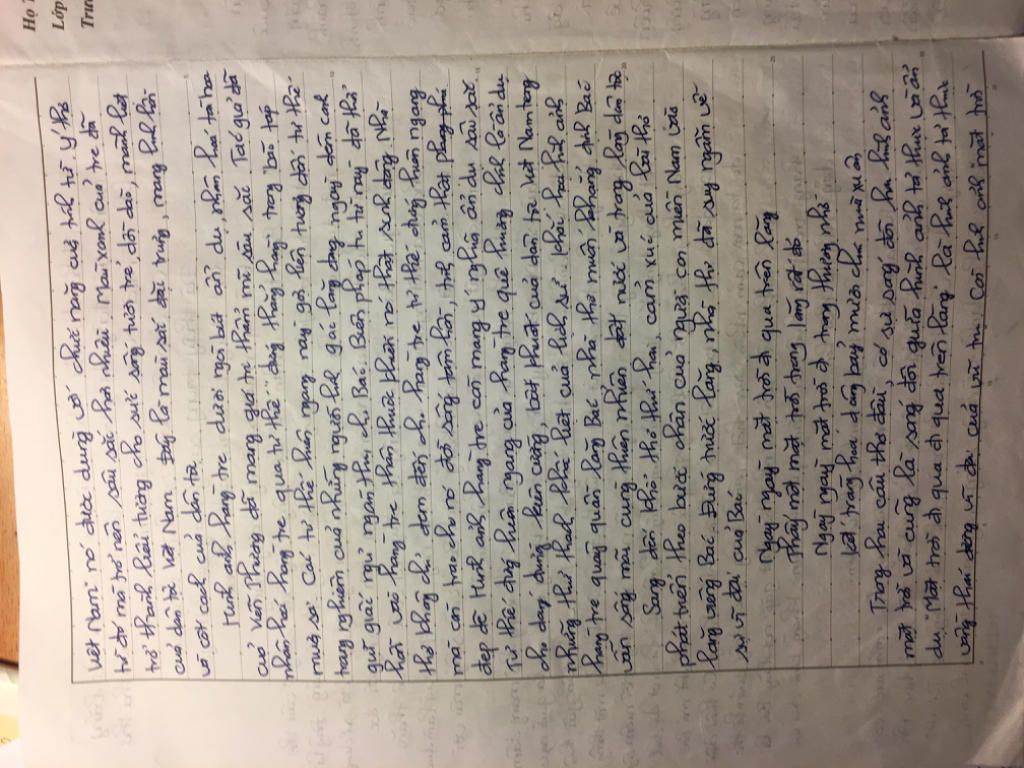 Họ T
Lớp
Trư
Việt Nam" nó được dùng với chức năng của tính từ. Ý thơ
từ đó mà trở nên sâu sắc hơn nhiều. Màu xanh của tre đã
trở thành biểu tượng cho sức sống tươi trẻ, dồi dào, mãnh liệt
của dân tộc Việt Nam. Đấy là màu sắc đất nước, mang linh hồn
và cốt cách của dân tộc
Hình ảnh hàng tre dưới ngòi bút ẩn dụ, nhân hoá tài hoa
của Viễn Phương đã mang giá trị thẩm mĩ sâu sắc. Tác giả đã
nhân hoá hàng tre qua tư thế "đứng thẳng hàng" trong bão táp
mưa sa. Cái tư thế hiên ngang này gợi liên tưởng đến tư thế
trang nghiêm của những người lính gác lăng đang ngày đêm canh
giữ giấc ngủ ngàn thu cho Bác. Biện pháp tu từ này đã thổi
hồn vào hàng tre thân thuộc khiến nó thật sinh động. Nhà
thơ không chỉ đem đến cho hàng tre tư thế đứng hiên ngang
mà còn trao cho nó đời sống tâm hồn, tình cảm thật phong phú
đẹp đẽ. Hình ảnh hàng tre còn mang ý nghĩa ẩn dụ sâu sắc
Từ thế đứng hiên ngang của hàng tre quê hương chính là ẩn dụ
cho dáng đứng kiên cường, bất khuất của dân tộc Việt Nam trong
những thử thách khốc liệt của lịch sử. Khắc hoạ hình ảnh
hàng tre quây quần lăng Bác nhà thơ muốn khẳng định Bác
vẫn sống mãi cùng thiên nhiên đất nước và trong lòng dân tộc
Sang đến khổ thơ thứ hai, cảm xúc của bài thơ
phát triển theo bước chân của người con miền Nam vào
lăng viếng Bác. Đứng trước lăng, nhà thơ đã suy ngẫm về
sự vĩ đại của Bác
Ngày ngày mặt trời đi qua trên lăng
Thấy một mặt trời trong lăng rất đỏ
Ngày ngày một trời đi trong thương nhớ
Kết tràng hoa dâng bảy mươi chín mùa xuân
Trong hai câu thơ đầu, có sự song đôi hai hình ảnh
mặt trời và cũng là song đôi giữa hình ảnh tả thực và ẩn
dụ. "Mặt trời đi qua đi qua trên lăng" là hình ảnh tả thực
vầng thái dương vĩ đại của vũ trụ. Còn hình ảnh mặt trời